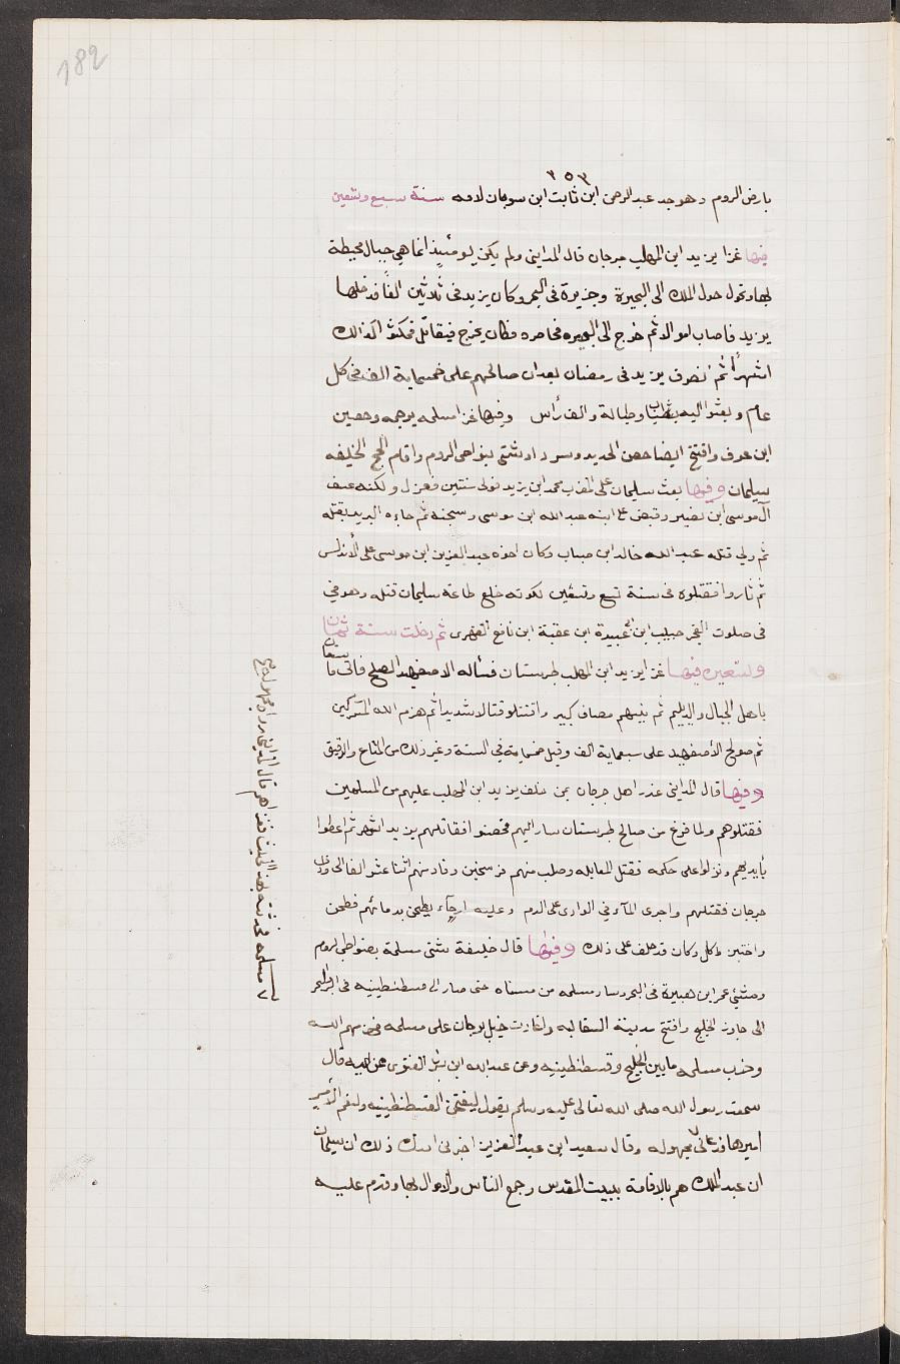 182
٣٥٣
بارض الروم وهو جد عبد الرحمن ابن ثابت ابن ثوبان لامه سنة سبع وتسعين
فيها غزا يزيد ابن المهلب جرجان قال المدايني ولم يكن يومئيذ انما هي جبال محيطة
بها وتحول صول الملك الى البحيرة وجزيرة في البحر وكان يزيد في ثلاثين الفاً فدخلها
يزيد فاصاب اموالا ثم خرج الى البحيره فحاصره فكان يخرج فيقاتل فمكثوا كذالك
اشهراً ثم انصرف يزيد في رمضان بعد ان صالحهم على خمسماية الف في كل
عام وبعثوا اليه بثياب وطيالة والف رأس وفيها غزا مسلمه برجمه وحصين
ابن عوف وافتتح ايضا حصن الحديد وسردا وشتى بنواحي الروم واقام الحج الخليفه
سيلمان وفيها بعث سليمان على المغرب محمد ابن يزيد فولى سنتين فعزل ولكنه عسف
آل موسى ابن نصير وقبض على ابنه عبد الله ابن موسى وسجنه ثم جاءه البريد بقتله
ثم ولي قتله عبد الله خالد ابن حباب وكان اخوه عبد العزيز ابن موسى على الأندلس
ثم ثاروا فقتلوه في سنة تسع وتسعين لكونه خلع طاعة سليمان قتله وهو في
في صلوت الفجر حبيب ابن عبيدة ابن عقبة ابن نافع الفهرى ثم دخلت سنة ثمان
وتسعين فيها غزا يزيد ابن المهلب طبرستان فسأله الاصفهبد الصلح فأبى
باهل الجبال والديلم ثم بينهم مصاف كبير واقتتلو قتالا شديدا ثم هزم الله المشركين
ثم صولح الأصفهبد على سبعماية الف وقيل خمسمايه في السنة وغير ذلك من المتاع والرقيق
وفيها قال المدايني غدر اهل جرجان بمن خلف يزيد ابن المهلب عليهم من المسلمين
فقتلوهم ولما فرغ من صالح طبرستان سار اليهم فتحصنوا فقاتلهم يزيد اشهر ثم اعطوا
بأيديهم ونزلوا على حكمه فقتل المقابله وصلب منهم فرسخين وقاد منهم اثنا عشر الفا الى وادي
جرجان فقتلهم واجرى المآ في الوادي على الدم وعليه ارحاء يطحن بدمائهم فطحن
واختبز واكل وكان قد حلف على ذلك وفيها قال خليفة شتى مسلمة بضواحي لروم
وشتى عمر ابن هبيرة في البحر وسار مسلمه من مشتاه حتى صار الى قسطنطينيه في البر والبحر
الى جاوز الخليج وافتتح مدينة السقالبه واغارت خيل برجان على مسلمه فهزمهم الله
وخرب مسلمه مابين الخليج وقسطنطينيه وعن عبد الله ابن بشر الغنوى عن ابيه قال
سمعت رسول الله صلى الله تعالى عليه وسلم يقول ليفتحن القسطنطينيه ولنعم الأمير
اميرها وقال سعيد ابن عبد العزيز اخبرني ذلك ان سليمان
ابن عبد الملك هم بالاقامة ببيت المقدس وجمع الناس والأموال بها وقدم عليه
مسلمه فحدثته بهذ الحديث فغزاهم قال المدايني